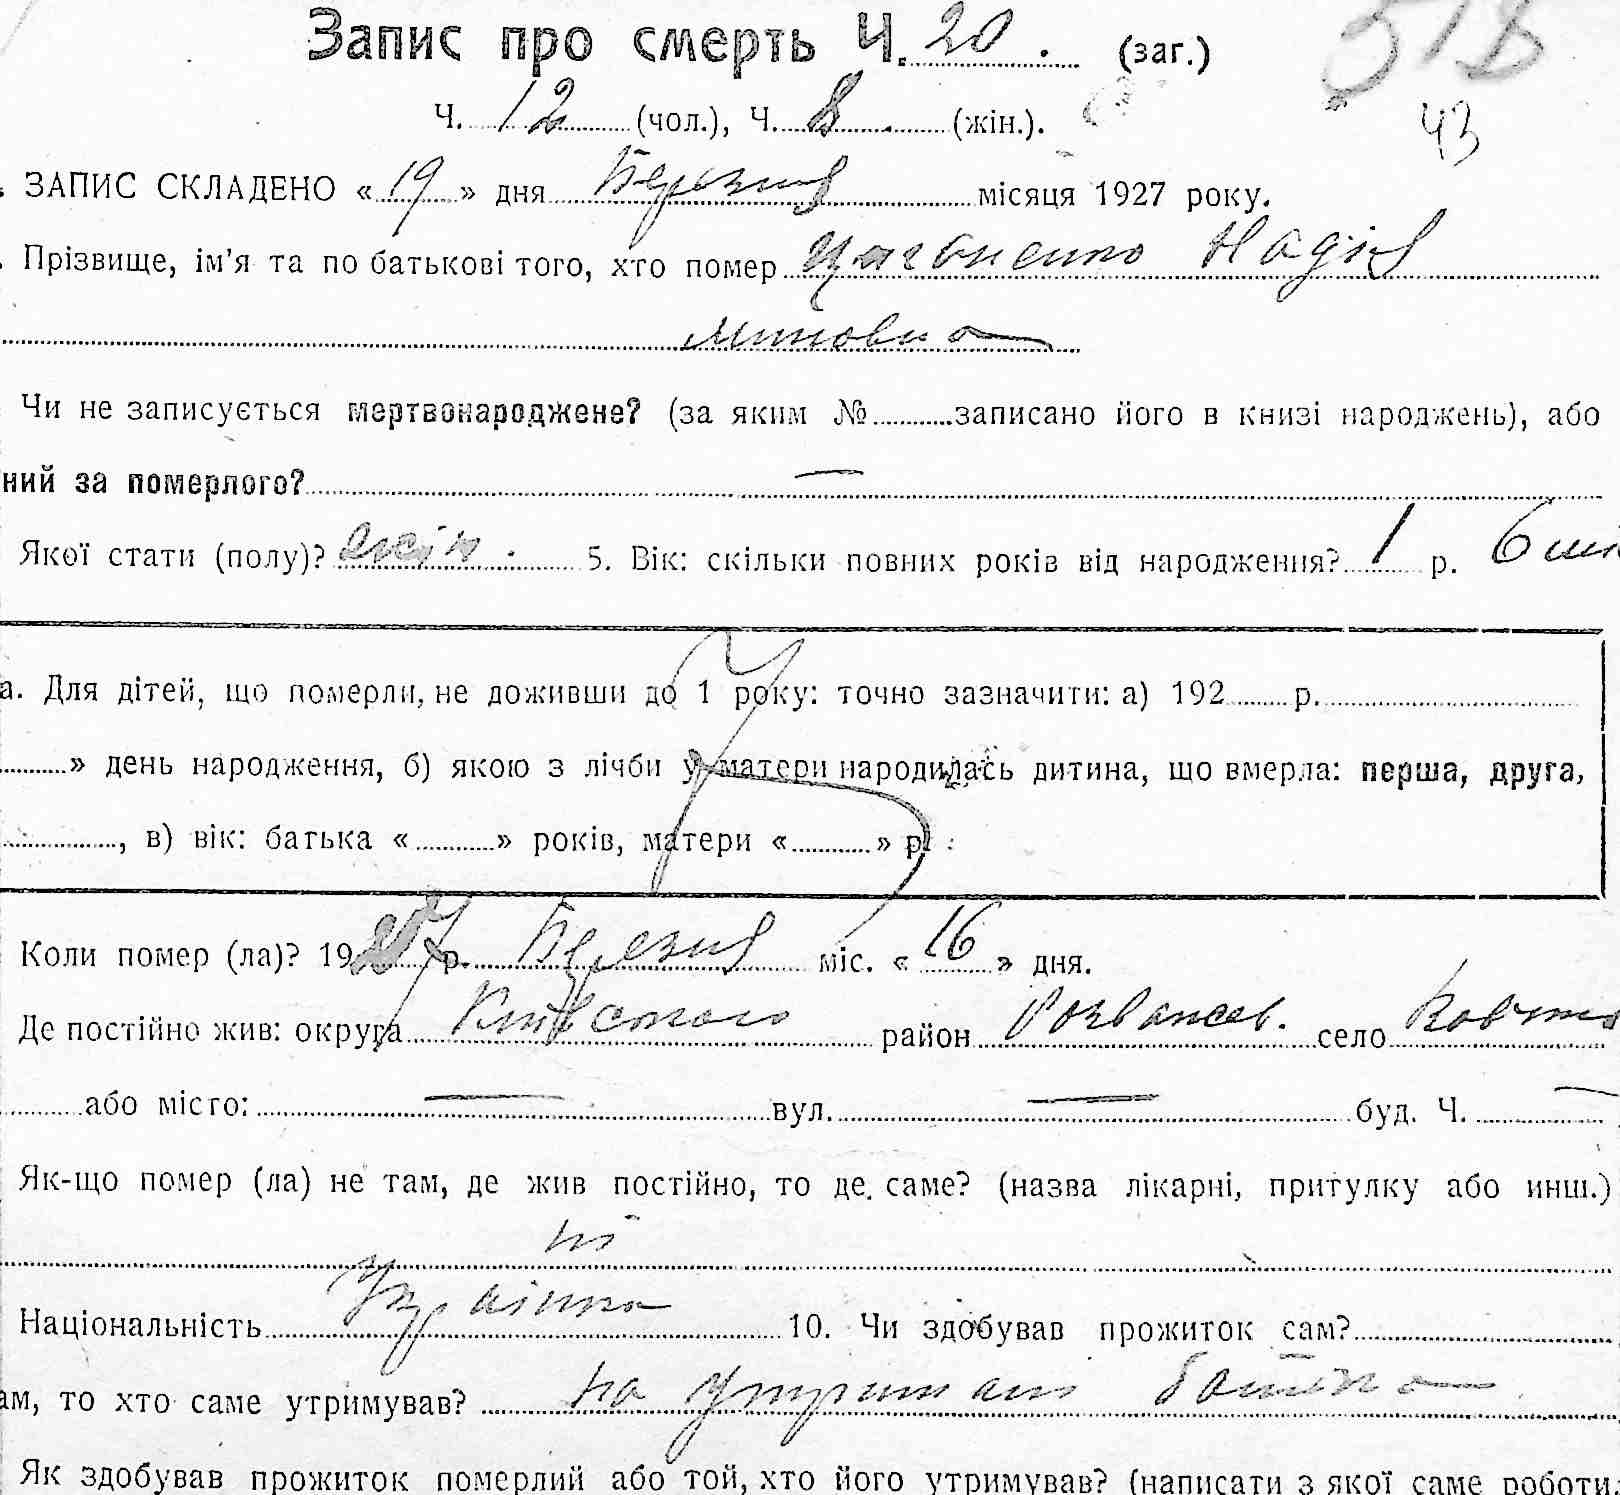 Запис про смерть Ч. 20. (заг.)
Ч. 12 (чол.), Ч. 8 (жін.).
43
ЗАПИС СКЛАДЕНО « 19 » дня Березня місяця 1927 року.
Прізвище, ім'я та по батькові того, хто помер Циганенко Надія
Чи не записується мертвонароджене? (за яким № записано його в книзі народжень), або
ний за померлого? —
Якої стати (полу)? жін. 5. Вік: скільки повних років від народження? 1 р. 6
а. Для дітей, що померли, не доживши до 1 року: точно зазначити: а) 192 р.
» день народження, б) якою з лічби у матери народилась дитина, що вмерла: перша, друга,
, в) вік: батька « » років, матери « » р.
Коли помер (ла)? 1927 р. Березня міс. « 16 » дня.
Де постійно жив: округа Київського район Розважев. село
або місто: — вул. — буд. Ч. —
Як-що помер (ла) не там, де жив постійно, то де саме? (назва лікарні, притулку або инш.)
ні
Національність Українка 10. Чи здобував прожиток сам?
ам, то хто саме утримував? на утриманні батька
Як здобував прожиток померлий або той, хто його утримував? (написати з якої саме роботи,